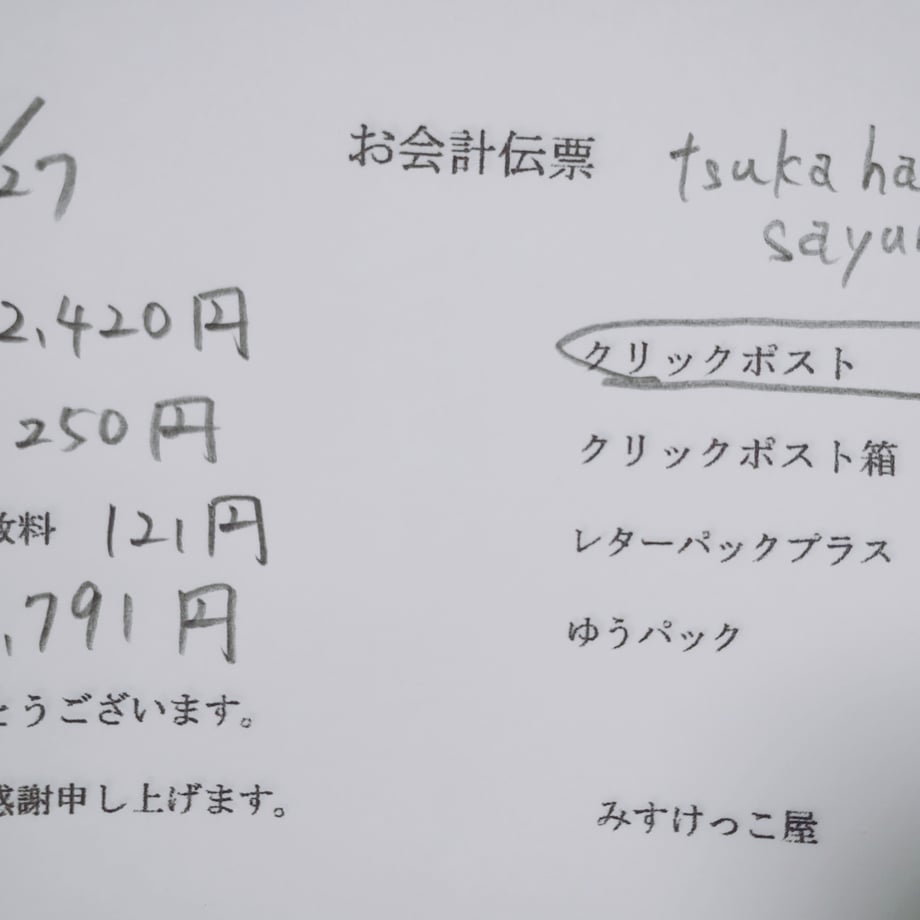 /27
お会計伝票
tsuka ha
sayu
2,420円
クリックポスト
250円
クリックポスト箱
数料 121円
レターパックプラス
,791円
ゆうパック
とうございます。
感謝申し上げます。
みすけっこ屋